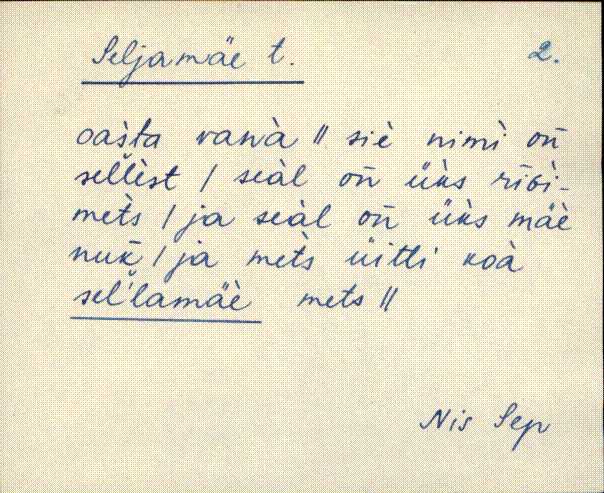 Seljamäe t.
2.
oàšta vanà || siè nimì oñ
sellèst / seàl oñ üks ribi-
mets / ja seàl oñ üks mäè
nuk / ja mèts üitti koà
sel'lamäè mets ||
Nis Sep